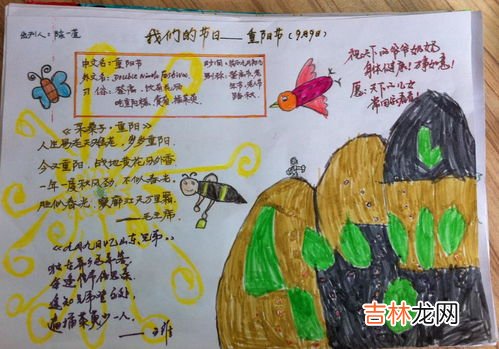 出刊人：陈一萱
我们的节日——重阳节（9月9日）
中文名：重阳节
英文名：Double Ninth Festival
习俗：登高、饮菊花酒
吃重阳糕、赏菊、插茱萸
祝天下的爷爷奶奶
身体健康！万事如意！
愿：天下的儿女
常回家看看！
《采桑子·重阳》
人生易老天难老，岁岁重阳，
今又重阳，战地黄花分外香
一年一度秋风劲，不似春光，
胜似春光，寥廓江天万里霜
——毛主席
《九月九日忆山东兄弟》
独在异乡为异客，
每逢佳节倍思亲，
遥知兄弟登高处，
遍插茱萸少一人。
——王维
吉林龙网